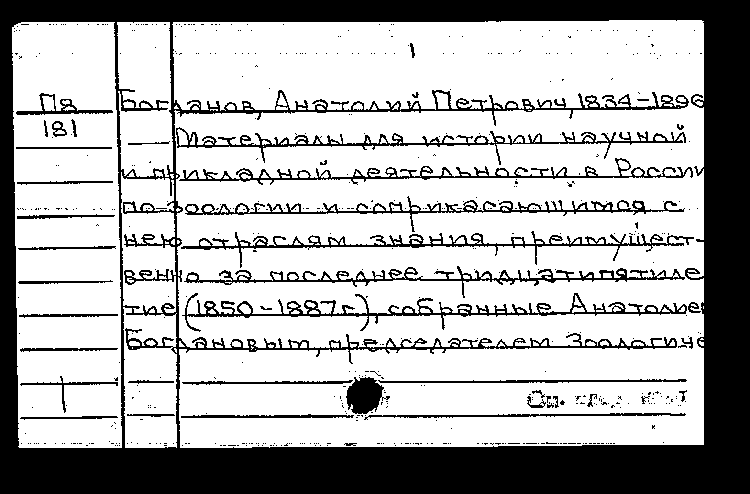 1
Пя Богданов, Анатолий Петрович, 1834-1896
181 — Материалы для истории научной
и прикладной деятельности в России
по зоологии и соприкасающимся с
нею отраслям знания, преимущест-
венно за последнее тридцатипятиле
тие (1850-1887 г.), собранные Анатолием
Богдановым, председателем Зоологиче
1 См. след.